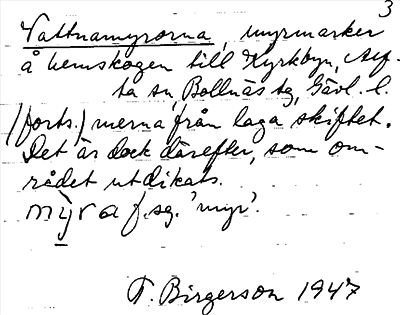 3
Vattnamyrorna, myrmarker
å hemskogen till Kyrkbyn, Alf-
ta sn, Bollnäs tg, Gävl. l.
(forts.) merna från laga skiftet.
Det är dock därefter, som om-
rådet utdikats.
my̱ra f. sg. 'myr'.
T. Birgerson 1947